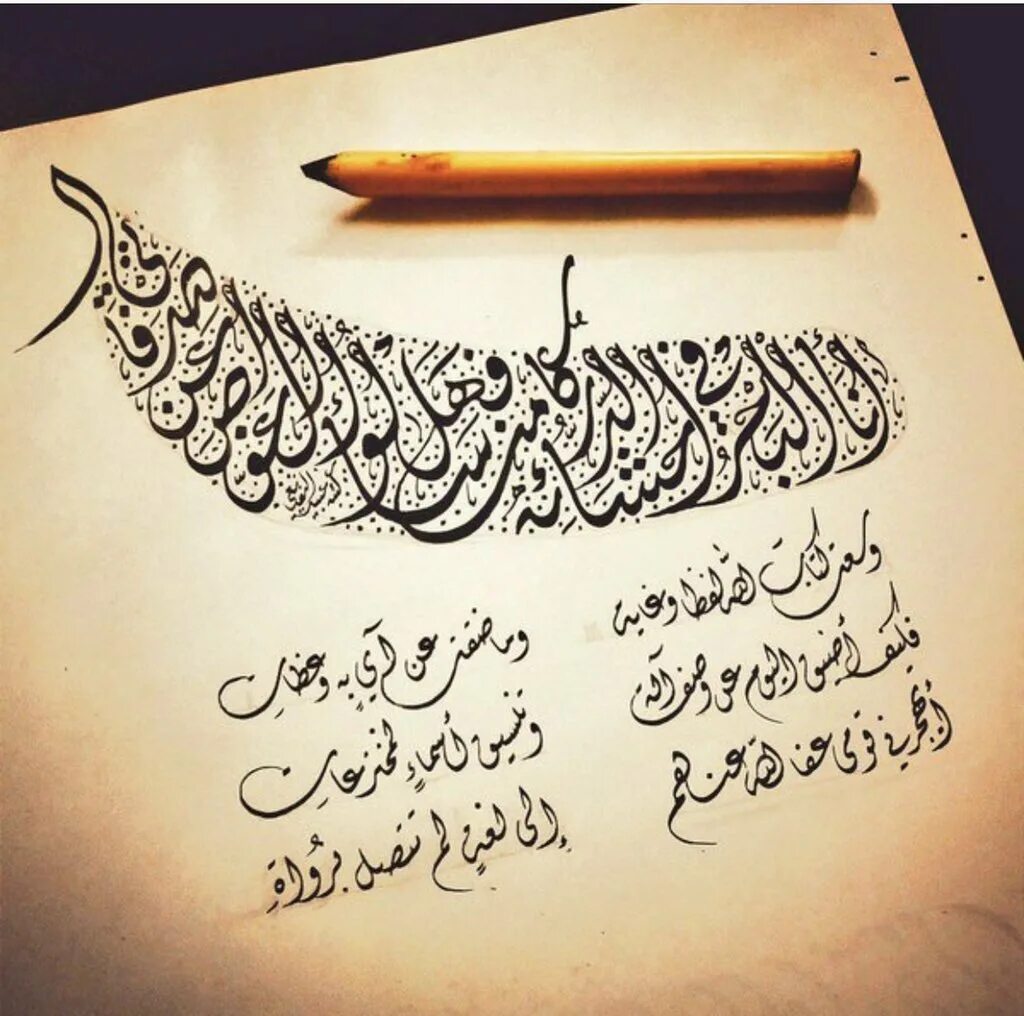 أنا البحر في أحشائه الدر كامن فهل ساءلوا الغواص عن صدفاتي
وسعت كتاب الله لفظا وغاية وما ضقت عن آيٍ به وعظاتِ
فكيف أضيق اليوم عن وصف آلة وتنسيق أسماءٍ لمخترعاتِ
أيهجرني قومي عفا الله عنهم إلى لغةٍ لم تتصل برُواةِ